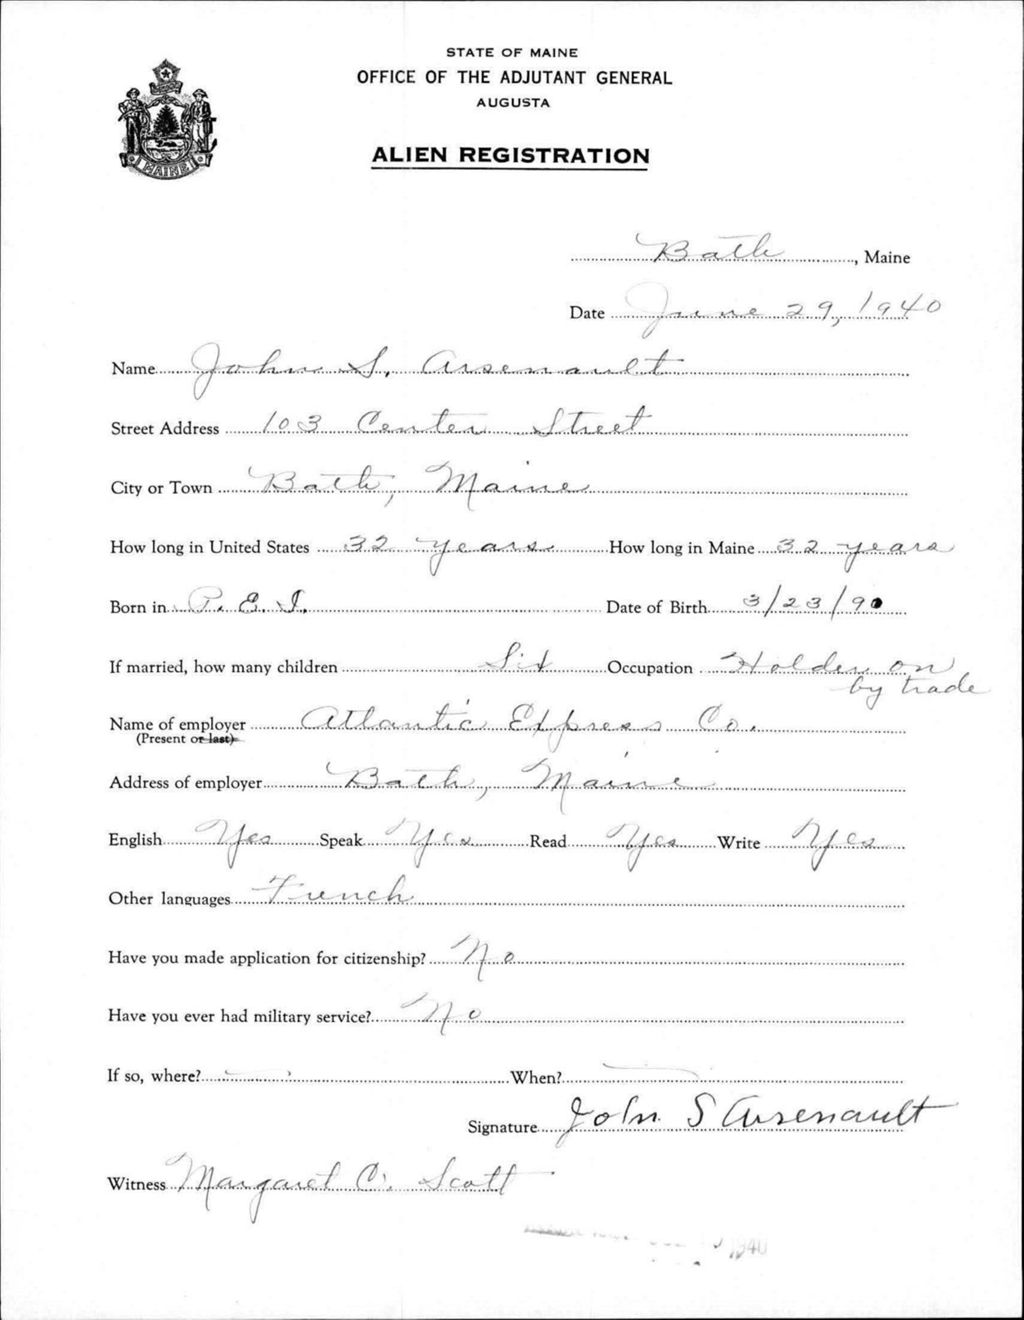 STATE OF MAINE
OFFICE OF THE ADJUTANT GENERAL
AUGUSTA
ALIEN REGISTRATION
MAINE
Bath, Maine
Date June 29, 1940
Name John S. Arsenault
Street Address 103 Center Street
City or Town Bath, Maine
How long in United States 32 years How long in Maine 32 years
Born in P. E. I. Date of Birth 3/23/90
If married, how many children Six Occupation Holder on
by trade
Name of employer Atlantic Express Co.
(Present or last)
Address of employer Bath, Maine
English Yes Speak Yes Read Yes Write Yes
Other languages French
Have you made application for citizenship? No
Have you ever had military service? No
If so, where? When?
Signature John S Arsenault
Witness Margaret C. Scott
1940